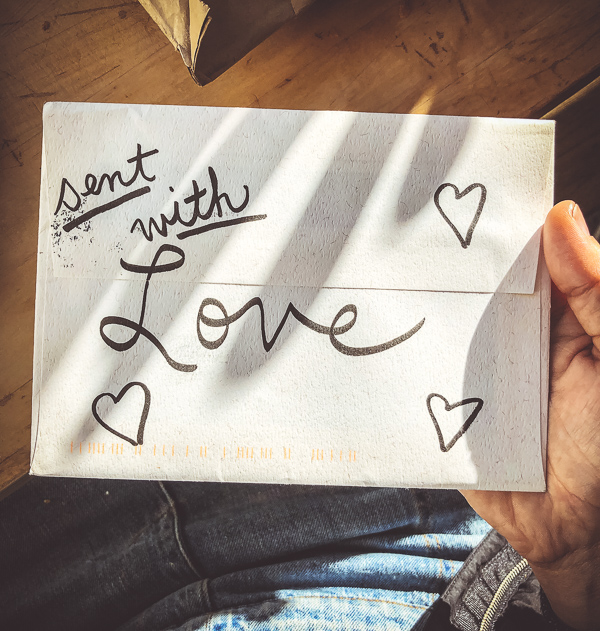 sent
with
Love